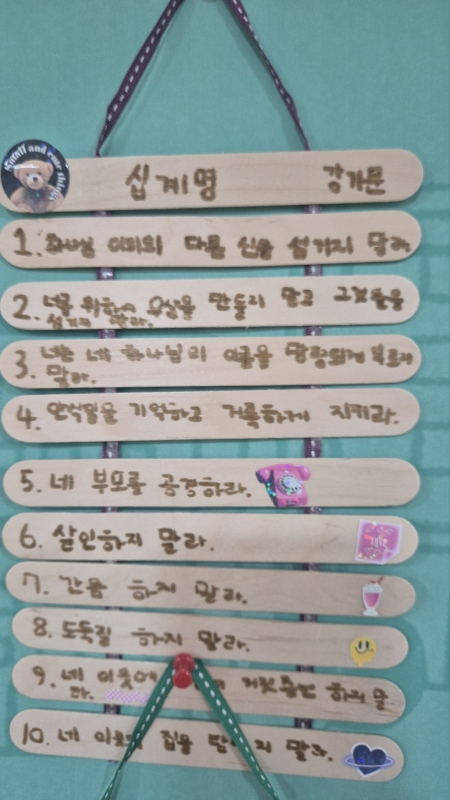 Small and cute things
십계명 강가문
1. 하나님 이외의 다른 신을 섬기지 말라
2. 너를 위하여 우상을 만들지 말고 그것들을
섬기지 말라.
3. 너는 네 하나님의 이름을 망령되게 부르지
말라.
4. 안식일을 기억하고 거룩하게 지키라.
5. 네 부모를 공경하라.
6. 살인하지 말라.
7. 간음 하지 말라.
8. 도둑질 하지 말라.
9. 네 이웃에 거짓증언 하지 말
라.
10. 네 집을 말라.